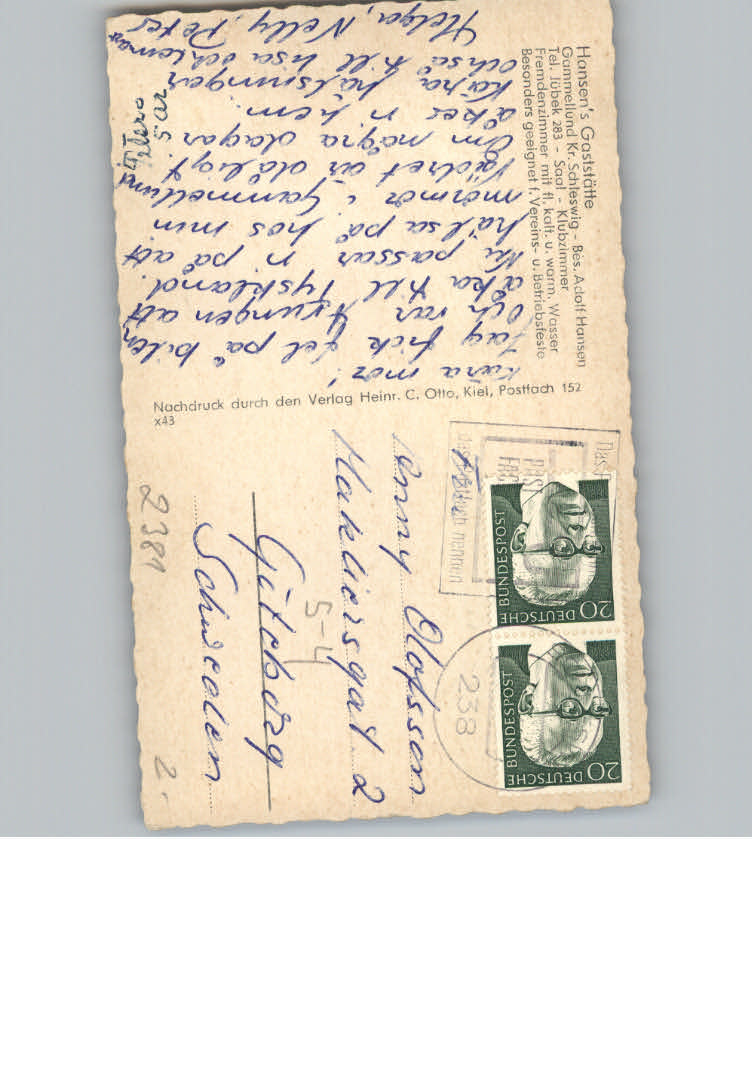 Hansen's Gaststätte
Gammellund Kr. Schleswig - Bes. Adolf Hansen
Tel. Jübek 283 - Saal - Klubzimmer
Fremdenzimmer mit fl. kalt. u. warm. Wasser
Besonders geeignet f. Vereins- u. Betriebsfeste
Kära mor!
Jag fick fel på bilen
och var tvungen att
åka till Tyskland.
Nu passar n på att
hälsa på hos min
mormor i Gammellund
Vädret är dåligt.
Om några dagar
åker n hem.
Kära hälsningar
också till Lisa och Lomas
Helga, Nelly, Peter
5 år
Nachdruck durch den Verlag Heinr. C. Otto, Kiel, Postfach 152
x43
Jenny Olofsson
Mäkliersgat. 2
Göteborg
Schweden
S-4
2381
2-
DEUTSCHE BUNDESPOST
20
DEUTSCHE BUNDESPOST
20
238
nennen